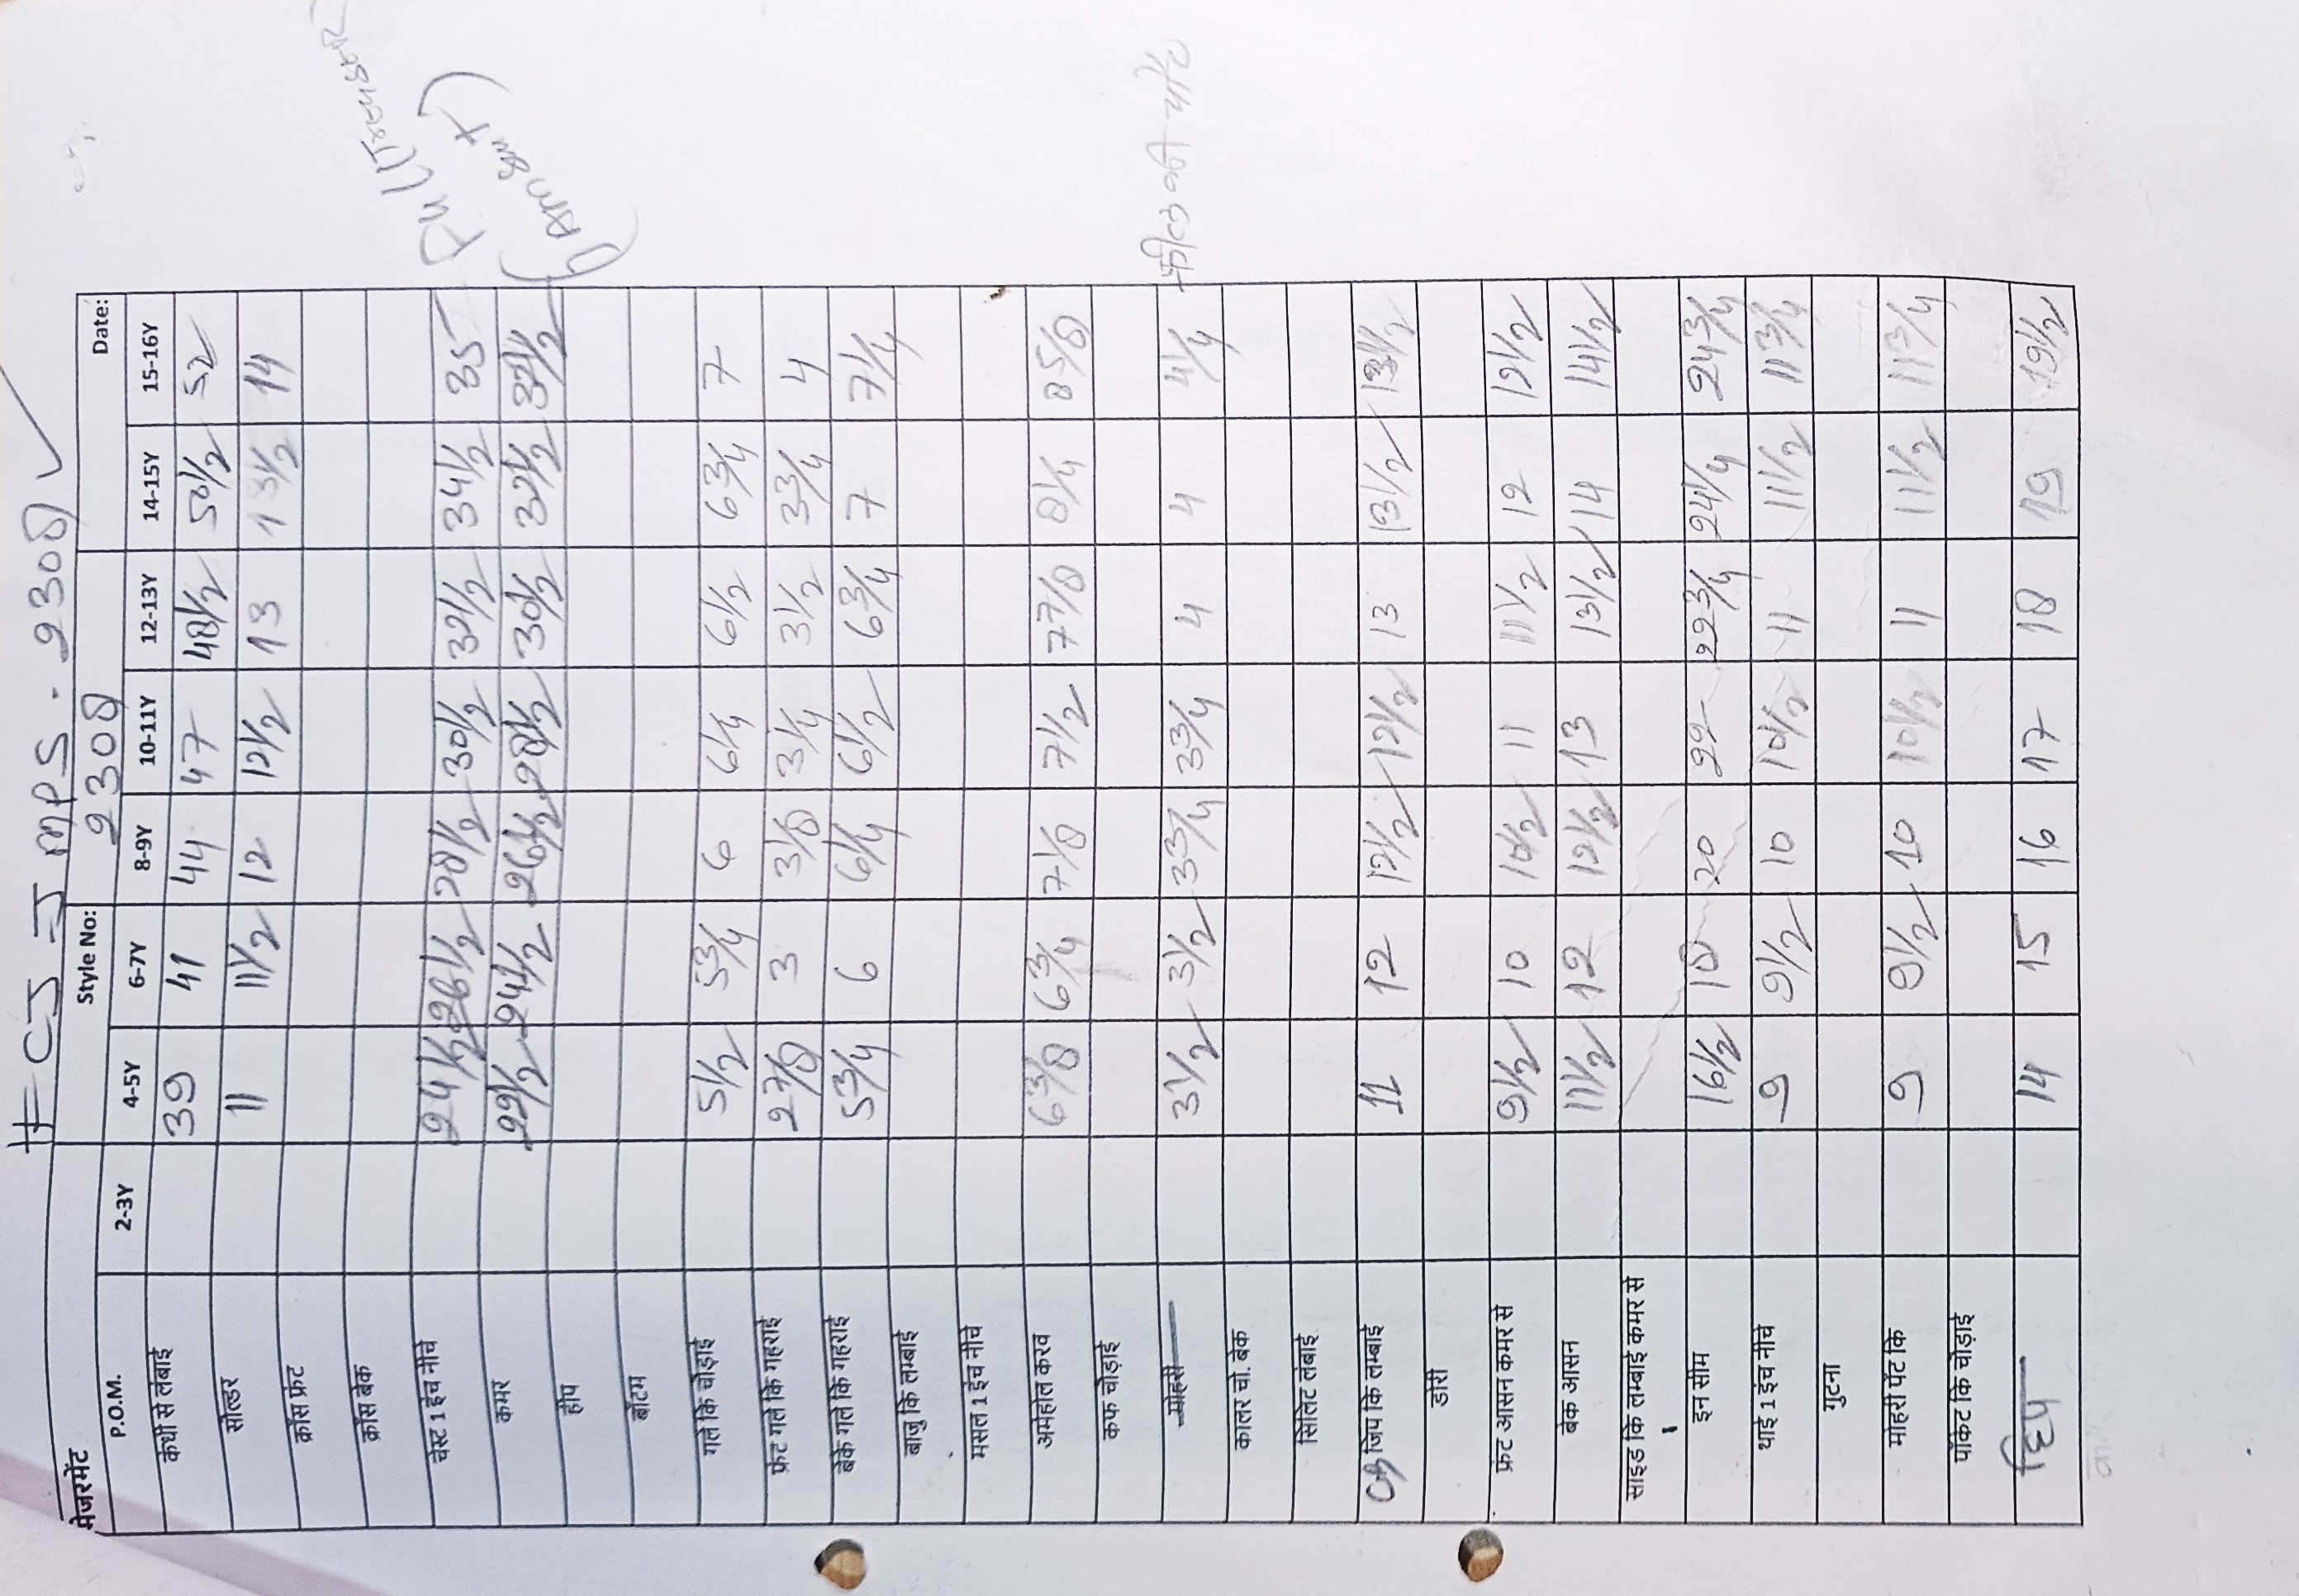 CJ = J MPS - 2308
मेजरमेंट Style No: 2308 Date:
P.O.M. 2-3Y 4-5Y 6-7Y 8-9Y 10-11Y 12-13Y 14-15Y 15-16Y
कंधी से लंबाई 39 41 44 47 48 1/2 50 1/2 52
सोल्डर 11 11 1/2 12 12 1/2 13 13 1/2 14
क्रॉस फ्रंट
क्रॉस बेक
चेस्ट 1 इंच नीचे 24 1/2 26 1/2 28 1/2 30 1/2 32 1/2 34 1/2 35
कमर 22 1/2 24 1/2 26 1/2 28 1/2 30 1/2 32 1/2
हीप
बॉटम
गले कि चोड़ाई 5 1/2 5 3/4 6 6 1/4 6 1/2 6 3/4 7
फ्रंट गले कि गहराई 2 7/8 3 3 1/8 3 1/4 3 1/2 3 3/4 4
बेक गले कि गहराई 5 3/4 6 6 1/4 6 1/2 6 3/4 7 7 1/4
बाजु कि लम्बाई
मसल 1 इंच नीचे
अर्महोल करव 6 3/8 6 3/4 7 1/8 7 1/2 7 7/8 8 1/4 8 5/8
कफ चौड़ाई
मोहरी 3 1/2 3 1/2 3 3/4 3 3/4 4 4 4 1/4
कालर चो. बेक
सिलिट लंबाई
जिप कि लम्बाई 11 12 12 1/2 12 1/2 13 13 1/2 13 1/2
डोरी
फ्रंट आसन कमर से 9 1/2 10 10 1/2 11 11 1/2 12 12 1/2
बेक आसन 11 1/2 12 12 1/2 13 13 1/2 14 14 1/2
साइड कि लम्बाई कमर से
इन सीम 16 1/2 18 20 22 22 3/4 24 1/4 24 3/4
थाई 1 इंच नीचे 9 9 1/2 10 10 1/2 11 11 1/2 11 3/4
गुटना
मोहरी पेंट कि 9 9 1/2 10 10 1/2 11 11 1/2 11 3/4
पॉकेट कि चोड़ाई
हिप 14 15 16 17 18 19 19 1/2